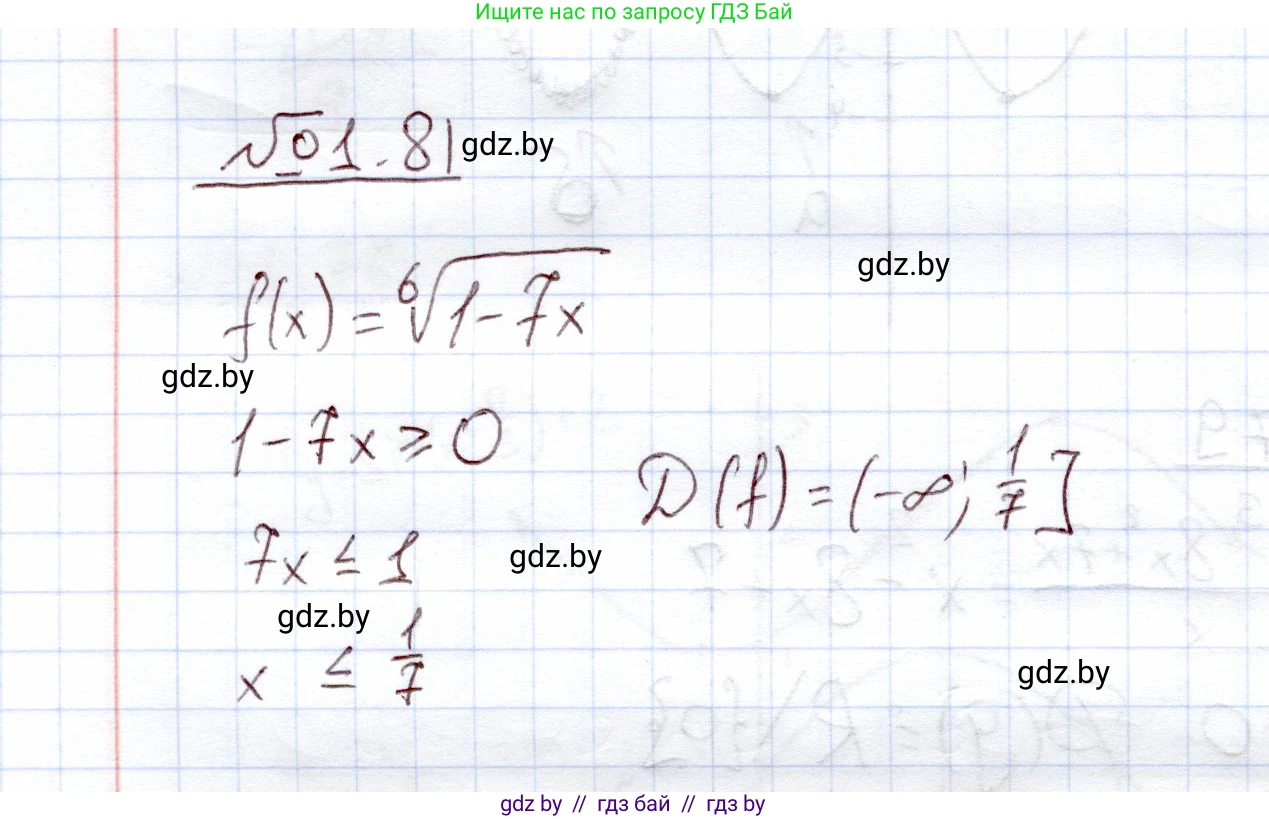 Ищите нас по запросу ГДЗ Бай
№1.81 gdz.by
gdz.by
f(x) = ⁶√(1-7x)
gdz.by
1-7x ≥ 0
D(f) = (-∞; 1/7]
7x ≤ 1
gdz.by
gdz.by
x ≤ 1/7
gdz.by
gdz by // гдз бай // гдз by